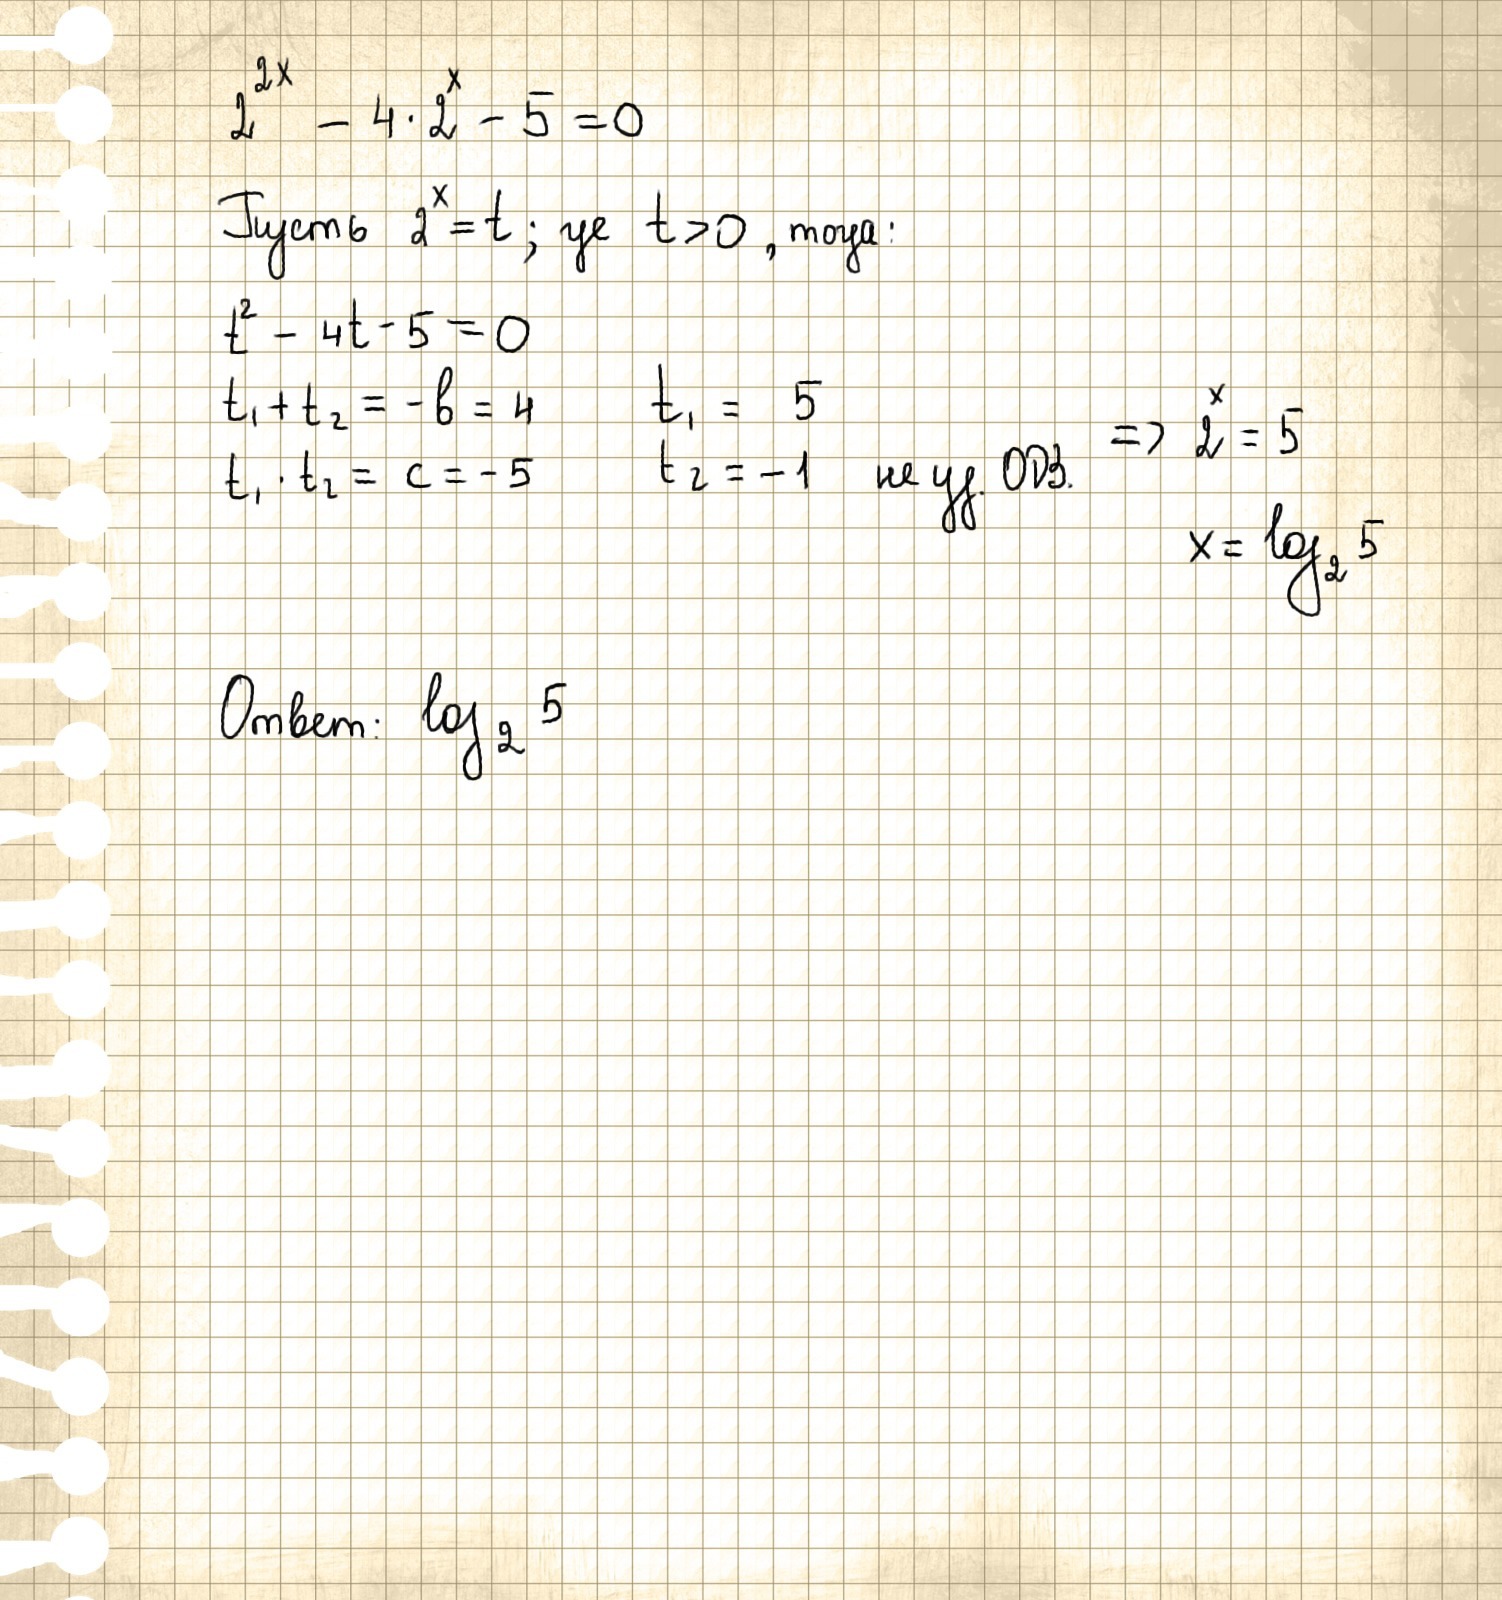 2^{2x} - 4 · 2^x - 5 = 0
Пусть 2^x = t; где t > 0, тогда:
t^2 - 4t - 5 = 0
t_1 + t_2 = -b = 4 t_1 = 5
t_1 · t_2 = c = -5 t_2 = -1 не уд. ОДЗ. => 2^x = 5
x = log_2 5
Ответ: log_2 5